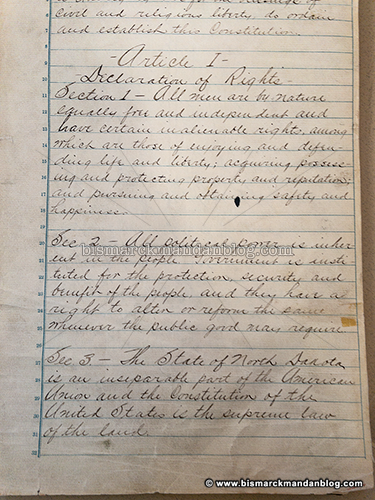 civil and religious liberty, do ordain
and establish this Constitution.
-Article I-
Declaration of Rights-
Section 1 - All men are by nature
equally free and independent and
have certain inalienable rights, among
which are those of enjoying and defen-
ding life and liberty; acquiring possess-
ing and protecting property and reputation;
and pursuing and obtaining safety and
happiness.
Sec. 2 - All political power is inher-
ent in the people. Government is insti-
tuted for the protection, security and
benefit of the people, and they have a
right to alter or reform the same
whenever the public good may require
Sec. 3 - The State of North Dakota
is an inseparable part of the American
Union and the Constitution of the
United States is the supreme law
of the land.
bismarckmandanblog.com
© www.bismarckmandanblog.com